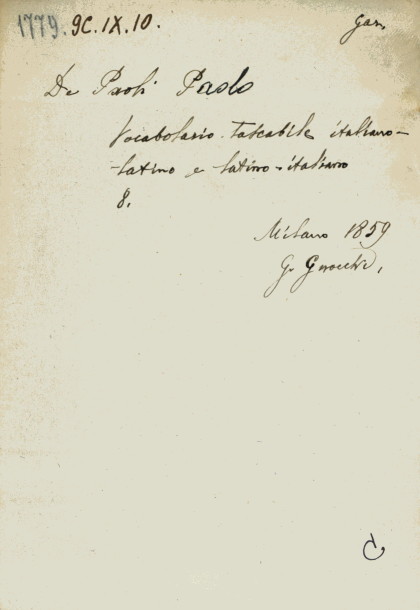 1779. 9C.IX.10. Gar.
De Paoli Paolo
Vocabolario tascabile italiano-
-latino e latino-italiano
8.
Milano 1859
G. Gnocchi,
C